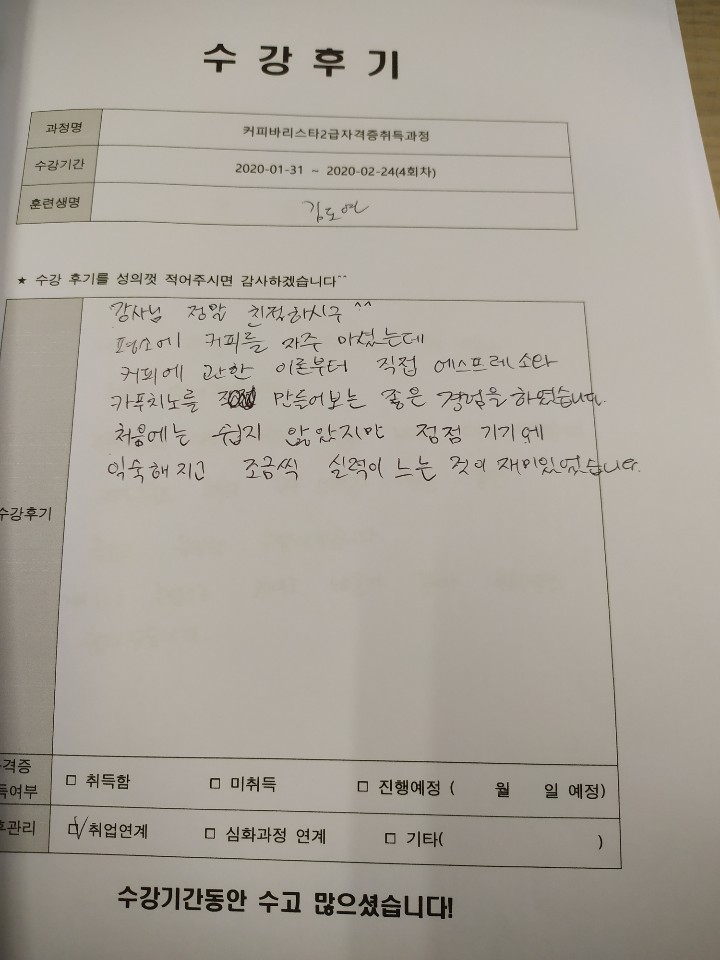 수강후기
과정명 커피바리스타2급자격증취득과정
수강기간 2020-01-31 ~ 2020-02-24(4회차)
훈련생명 김도연
★ 수강 후기를 성의껏 적어주시면 감사하겠습니다^^
강사님 정말 친절하시구 ^^
평소에 커피를 자주 마셨는데
커피에 관한 이론부터 직접 에스프레소와
카푸치노를 만들어보는 좋은 경험을 하였습니다.
처음에는 쉽지 않았지만 점점 기기에
익숙해지고 조금씩 실력이 느는 것이 재미있었습니다.
수강후기
격증
득여부
□ 취득함 □ 미취득 □ 진행예정 ( 월 일 예정)
후관리 ☑ 취업연계 □ 심화과정 연계 □ 기타( )
수강기간동안 수고 많으셨습니다!